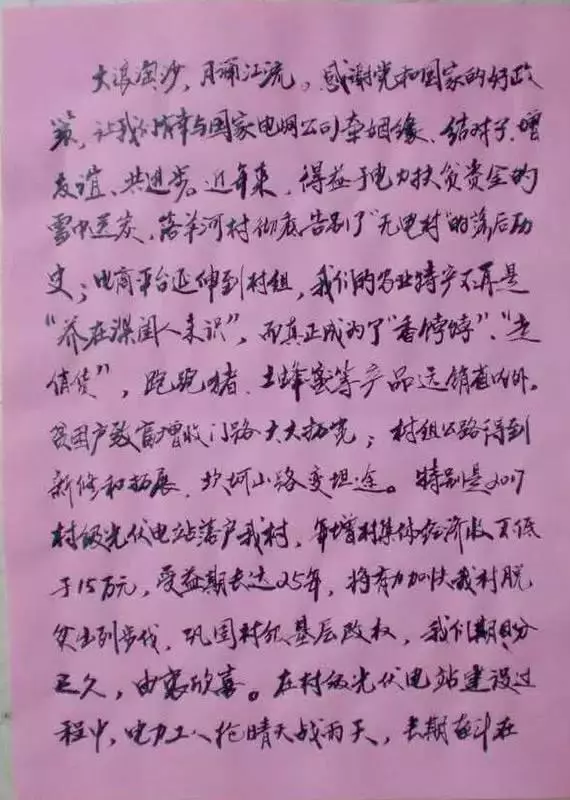 大浪淘沙，月涌江流。感谢党和国家的好政
策，让我们成幸与国家电网公司牵姻缘、结对子、增
友谊、共进步。近年来，得益于电力扶贫资金的
雪中送炭，落羊河村彻底告别了“无电村”的落后历
史；电商平台延伸到村组，我们的农业特产不再是
“养在深闺人未识”，而真正成为了“香饽饽”、“走
俏货”，跑跑猪、土蜂蜜等产品远销省内外。
贫困户致富增收门路大大拓宽；村组公路得到
新修和拓展，坎坷小路变坦途。特别是2017
村级光伏电站落户我村，年增村集体经济收入不低
于15万元，受益期长达25年，将有力加快我村脱
贫出列步伐，巩固村级基层政权，我们期盼
已久，由衷欣喜。在村级光伏电站建设过
程中，电力工人抢晴天战雨天，长期奋斗在